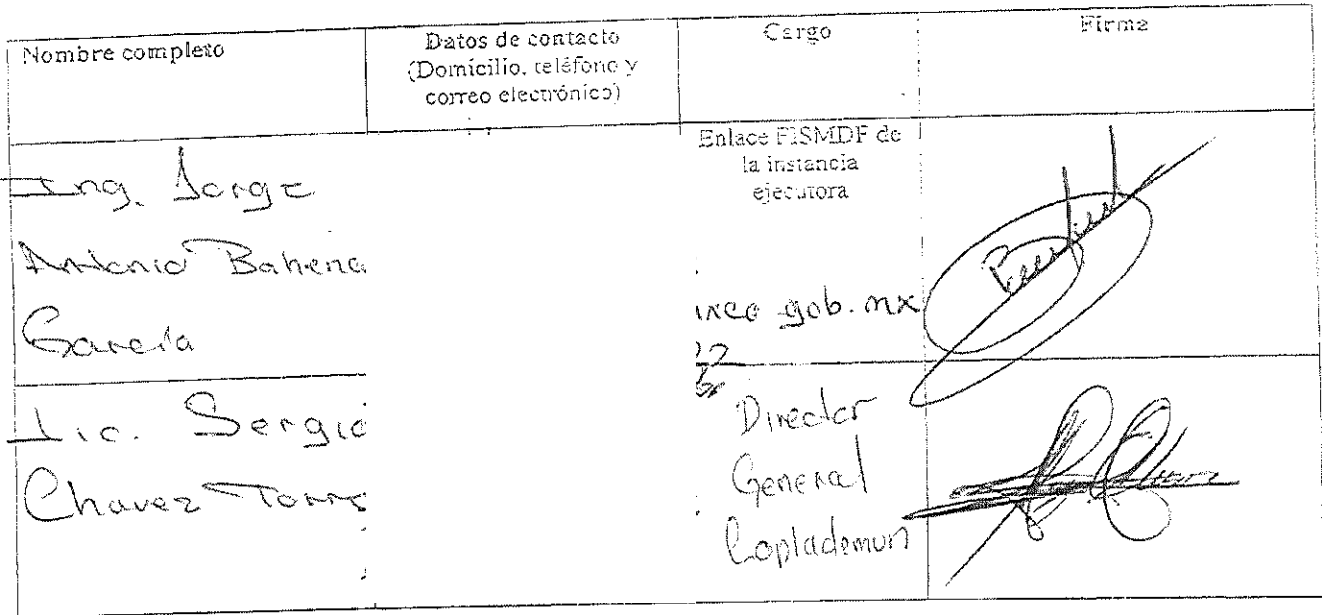 Nombre completo
Datos de contacto
(Domicilio, teléfono y
correo electrónico)
Cargo
Firma
Ing. Jorge
Antonio Bahena
García
Enlace FISMDF de
la instancia
ejecutora
gob.mx
Lic. Sergio
Chavez Torre
Director
General
Coplademun